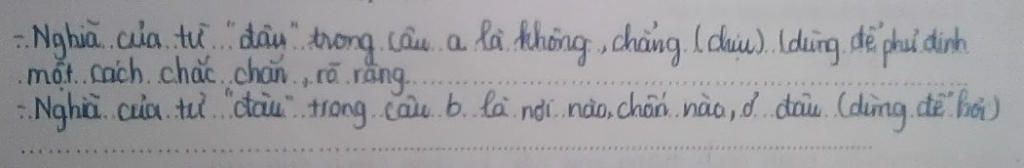 - Nghĩa của từ "đâu" trong câu a là không, chẳng. (chịu) (dùng để phủ định
một cách chắc chắn, rõ ràng.
- Nghĩa của từ "đâu" trong câu b là nơi nào, chốn nào, ở đâu (dùng để hỏi)